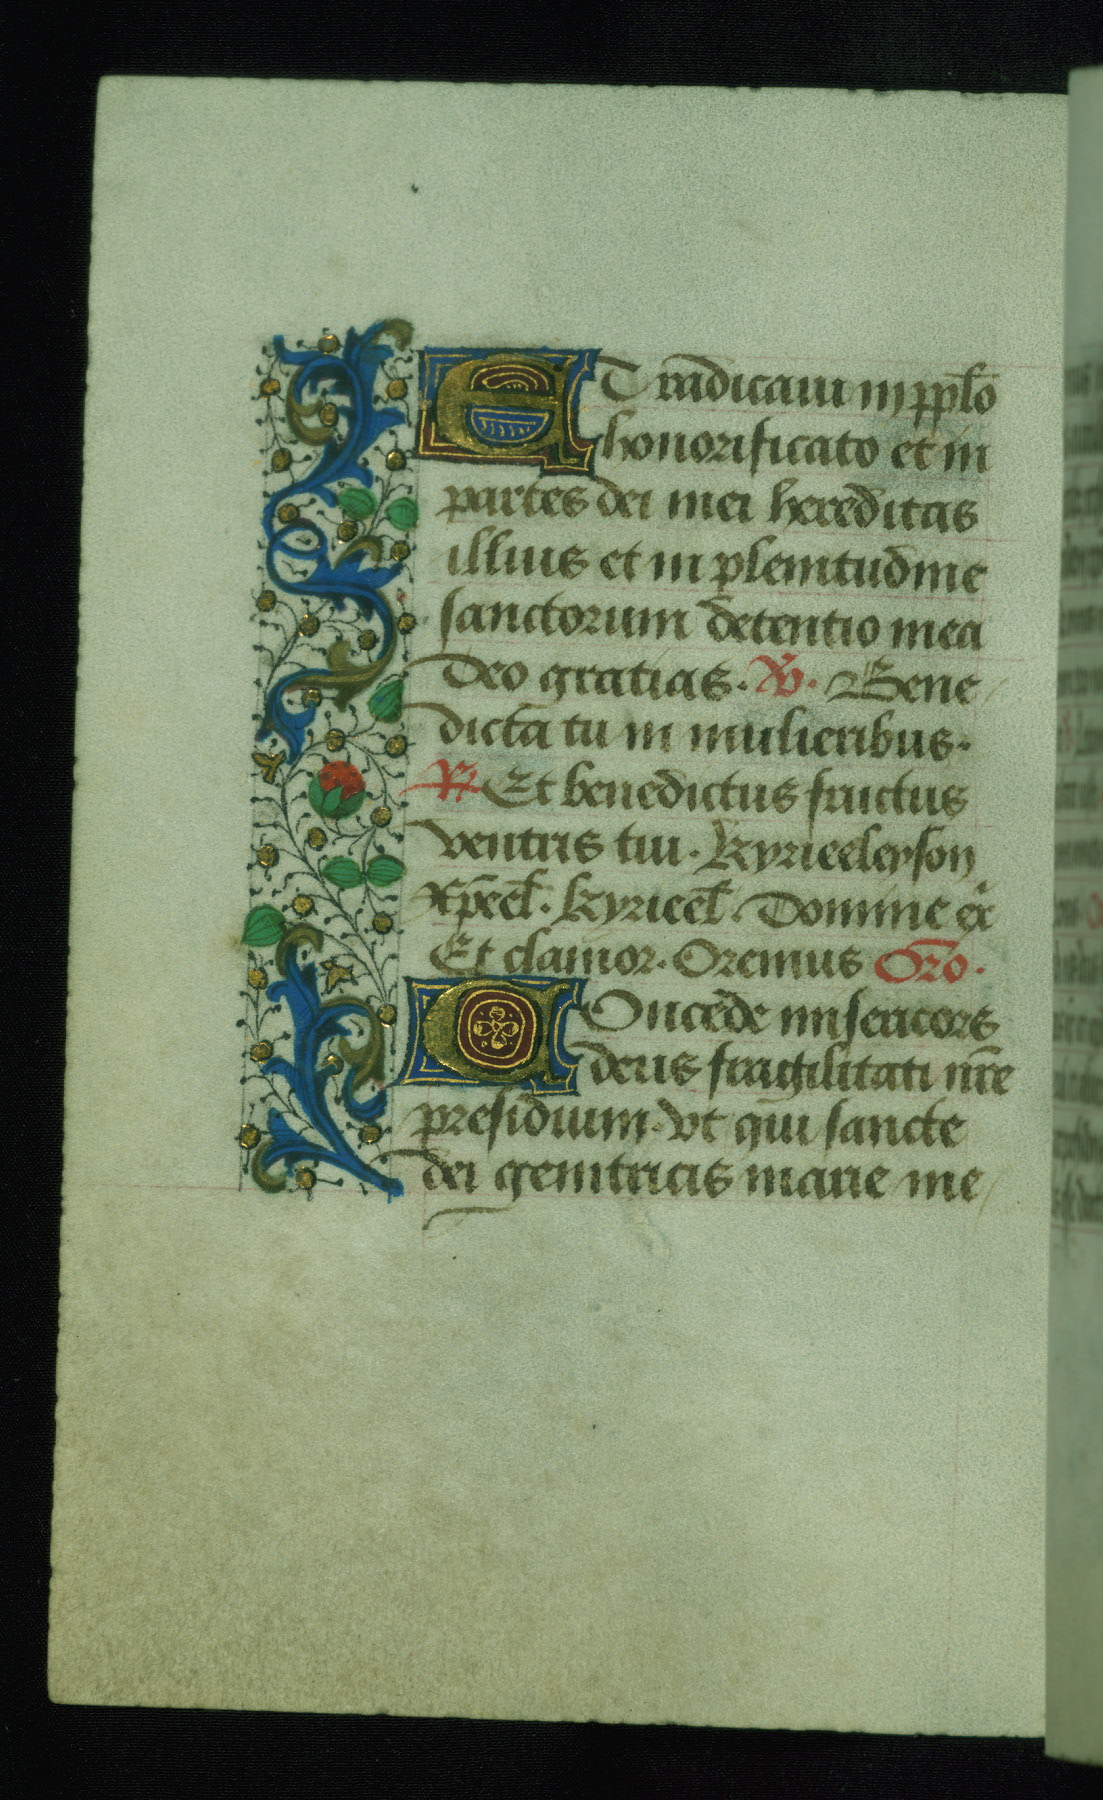 ET radicaui in pp̄lo
honorificato et in
partes dei mei hereditas
illius et in plenitudine
sanctorum detentio mea
Deo gratias. V̄. Bene
dicta tu in mulieribus.
R̄ Et benedictus fructus
ventris tui. Kyrieeleyson
xp̄eel̄. kyrieel̄. Domine ex̄
Et clamor. Oremus Or̄o.
COncede misericors
deus fragilitati nr̄e
presidium. vt qui sancte
dei genitricis marie me